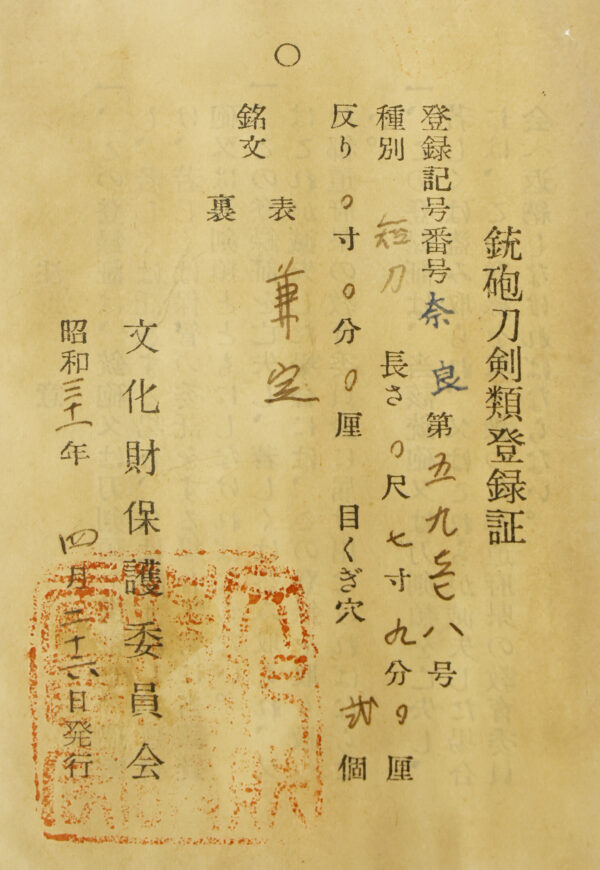 銃砲刀剣類登録証
登録記号番号 奈良 第五九 八号
種別 短刀 長さ 〇尺七寸九分〇厘
反り 〇寸〇分〇厘 目くぎ穴 弐個
銘文 表 兼定
裏
文化財保護委員会
昭和三十一年四月二十六日発行